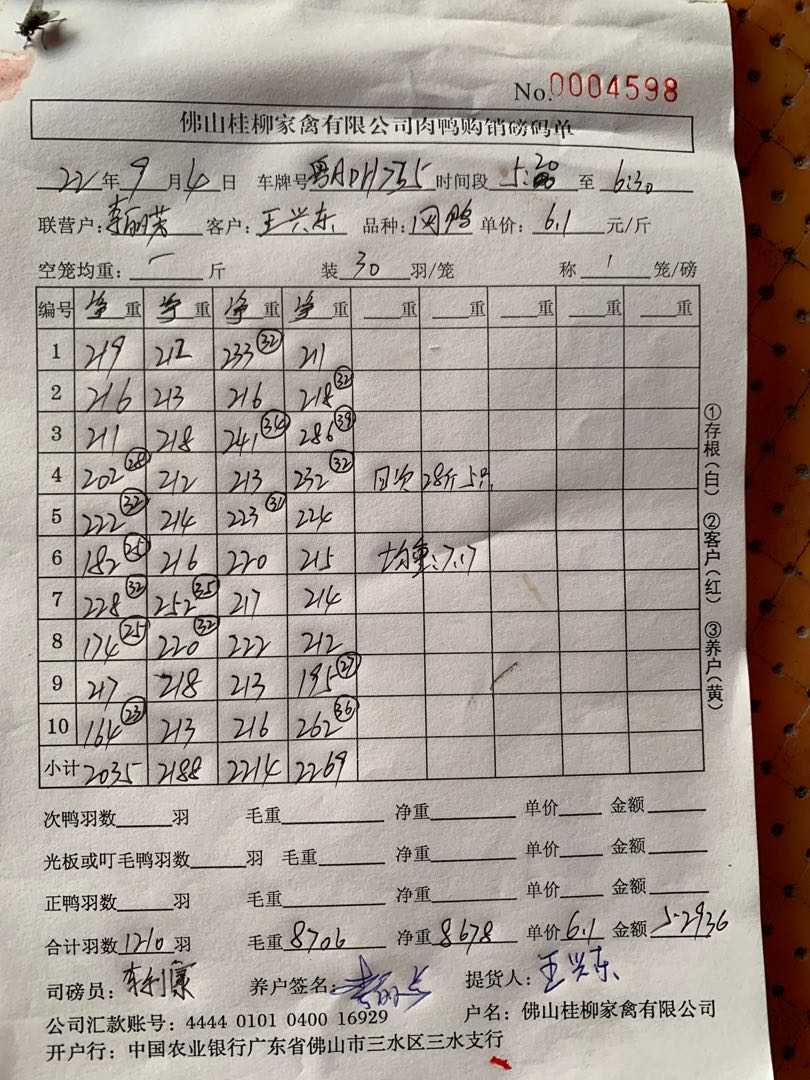 No.0004598
佛山桂柳家禽有限公司肉鸭购销磅码单
22年9月4日 车牌号粤ADH755 时间段5:20至6:30
联营户:李丽荣 客户:王兴东 品种: 单价:6.1元/斤
空笼均重:一斤 装30羽/笼 称1笼/磅
编号 净重 净重 净重 净重 重 重 重 重 重
1 219 212 233㉜ 211
2 216 213 216 218㉜
3 211 218 241㉞ 286㊴
4 202㉘ 212 213 232㉜ 28斤5只
5 222㉜ 214 223㉛ 224
6 182㉕ 216 220 215 均重:7.17
7 228㉜ 252㉟ 217 214
8 174㉕ 220㉜ 222 212
9 217 218 213 195㉗
10 164㉓ 213 216 262㊱
小计 2035 2188 2214 2269
①存根(白) ②客户(红) ③养户(黄)
次鸭羽数 羽 毛重 净重 单价 金额
光板或叮毛鸭羽数 羽 毛重 净重 单价 金额
正鸭羽数 羽 毛重 净重 单价 金额
合计羽数1210羽 毛重8706 净重8678 单价6.1 金额52936
司磅员: 养户签名: 提货人:王兴东
公司汇款账号:4444 0101 0400 16929 户名:佛山桂柳家禽有限公司
开户行:中国农业银行广东省佛山市三水区三水支行